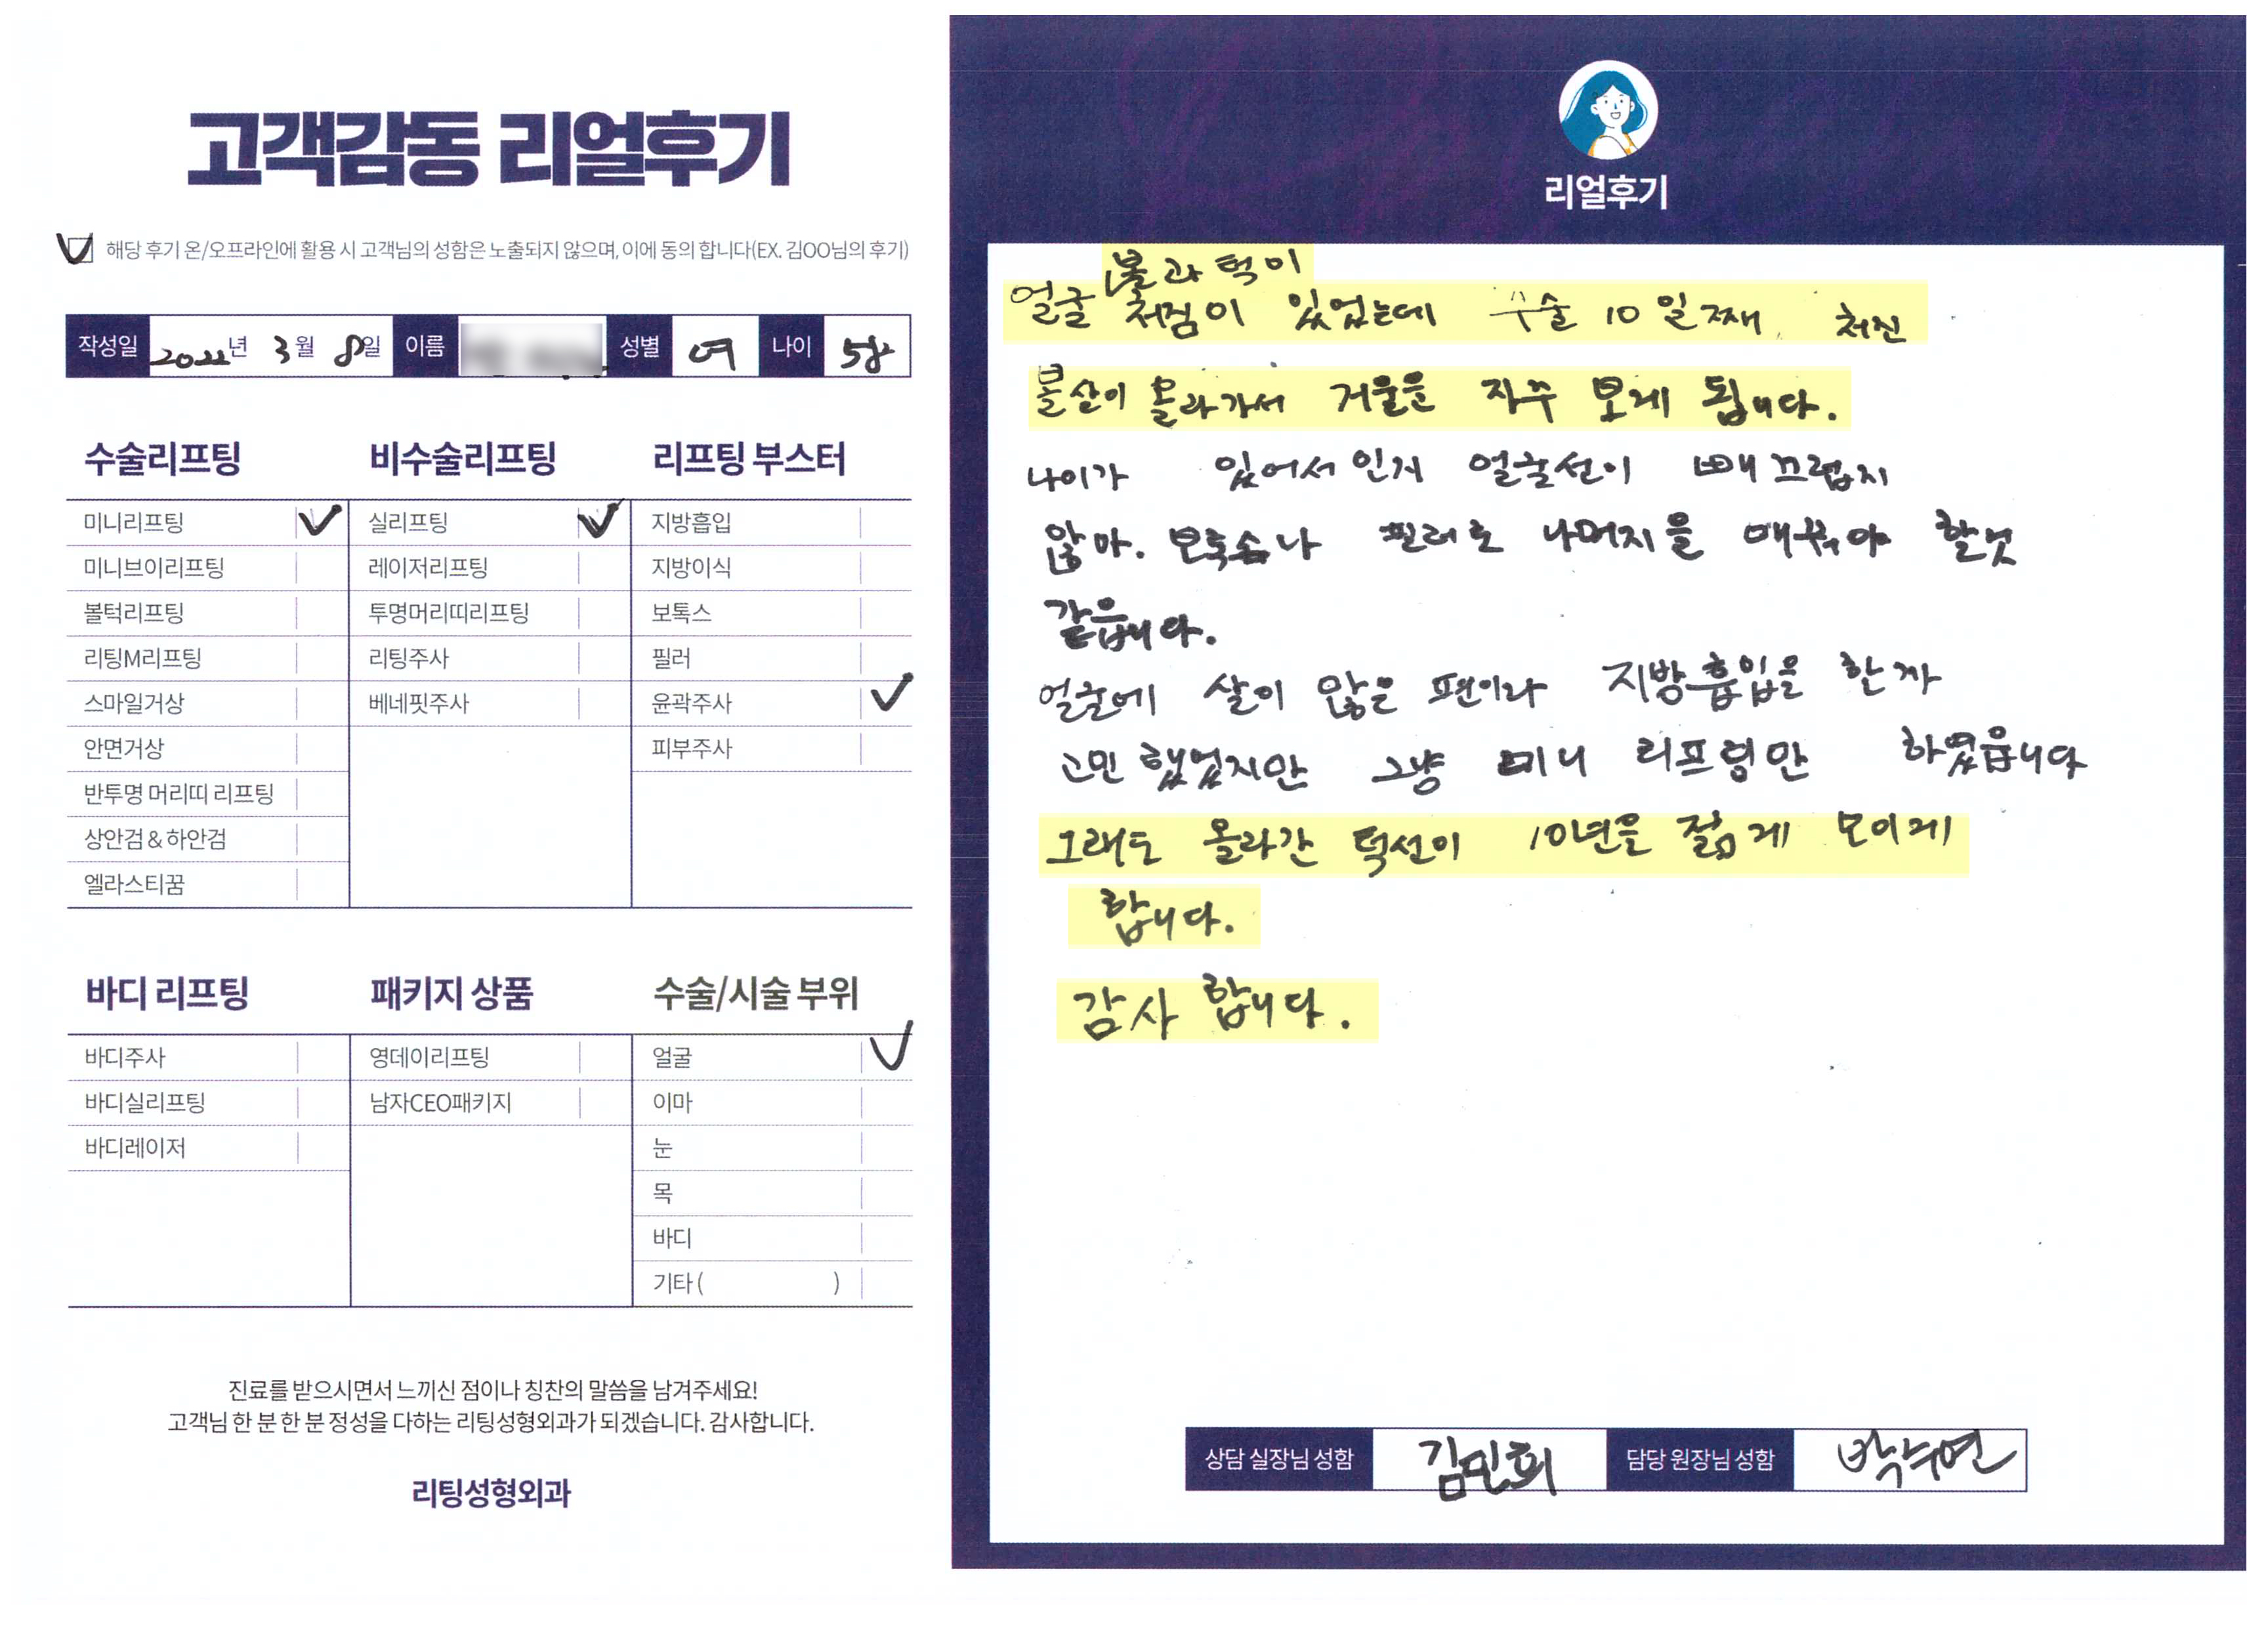 고객감동 리얼후기
해당 후기 온/오프라인에 활용 시 고객님의 성함은 노출되지 않으며, 이에 동의 합니다(EX. 김OO님의 후기)
작성일 2022년 3월 8일 이름 성별 여 나이 58
수술리프팅
미니리프팅
미니브이리프팅
볼턱리프팅
리팅M리프팅
스마일거상
안면거상
반투명 머리띠 리프팅
상안검 & 하안검
엘라스티꿈
비수술리프팅
실리프팅
레이저리프팅
투명머리띠리프팅
리팅주사
베네핏주사
리프팅 부스터
지방흡입
지방이식
보톡스
필러
윤곽주사
피부주사
바디 리프팅
바디주사
바디실리프팅
바디레이저
패키지 상품
영데이리프팅
남자CEO패키지
수술/시술 부위
얼굴
이마
눈
목
바디
기타 ( )
진료를 받으시면서 느끼신 점이나 칭찬의 말씀을 남겨주세요!
고객님 한 분 한 분 정성을 다하는 리팅성형외과가 되겠습니다. 감사합니다.
리팅성형외과
리얼후기
볼과 턱이
얼굴 처짐이 있었는데 수술 10일째 처진
볼살이 올라가서 거울을 자주 보게 됩니다.
나이가 있어서 인지 얼굴선이 매끄럽지
않아. 보톡스나 필러로 나머지을 메꿔야 할것
같읍니다.
얼굴에 살이 많은 편이라 지방흡입을 할까
고민 했었지만 그냥 미니 리프팅만 하였읍니다
그래도 올라간 턱선이 10년은 젊게 보이게
합니다.
감사 합니다.
상담 실장님 성함 김민희 담당 원장님 성함 박수연